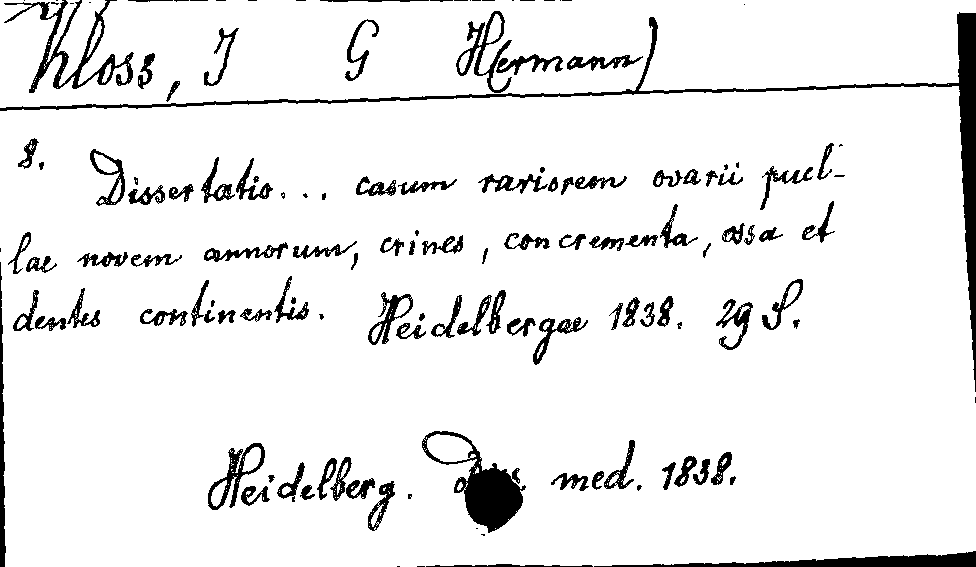 Kloss, J G H(ermann)
8. Dissertatio... casum rariorem ovarii puel-
lae novem annorum, crines, concrementa, ossa et
dentes continentis. Heidelbergae 1838. 29 S.
Heidelberg. med. 1838.